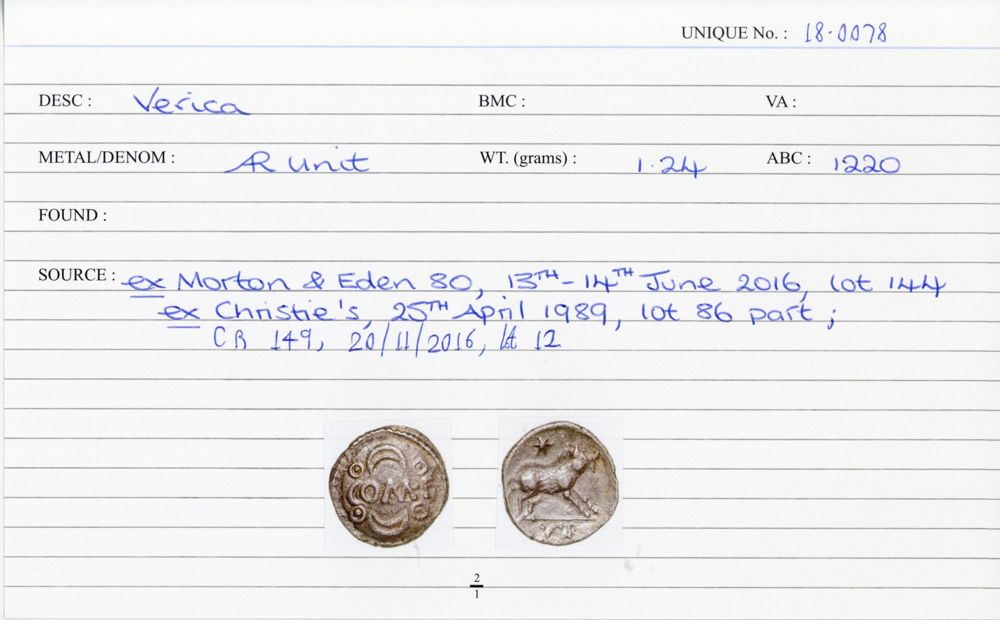 UNIQUE No. : 18-0078
DESC : Verica BMC : VA :
METAL/DENOM : AR Unit WT. (grams) : 1.24 ABC : 1220
FOUND :
SOURCE : ex Morton & Eden 80, 13TH-14TH June 2016, lot 144
ex Christie's, 25TH April 1989, lot 86 part ;
CR 149, 20/11/2016, lot 12
COMMI
2
1